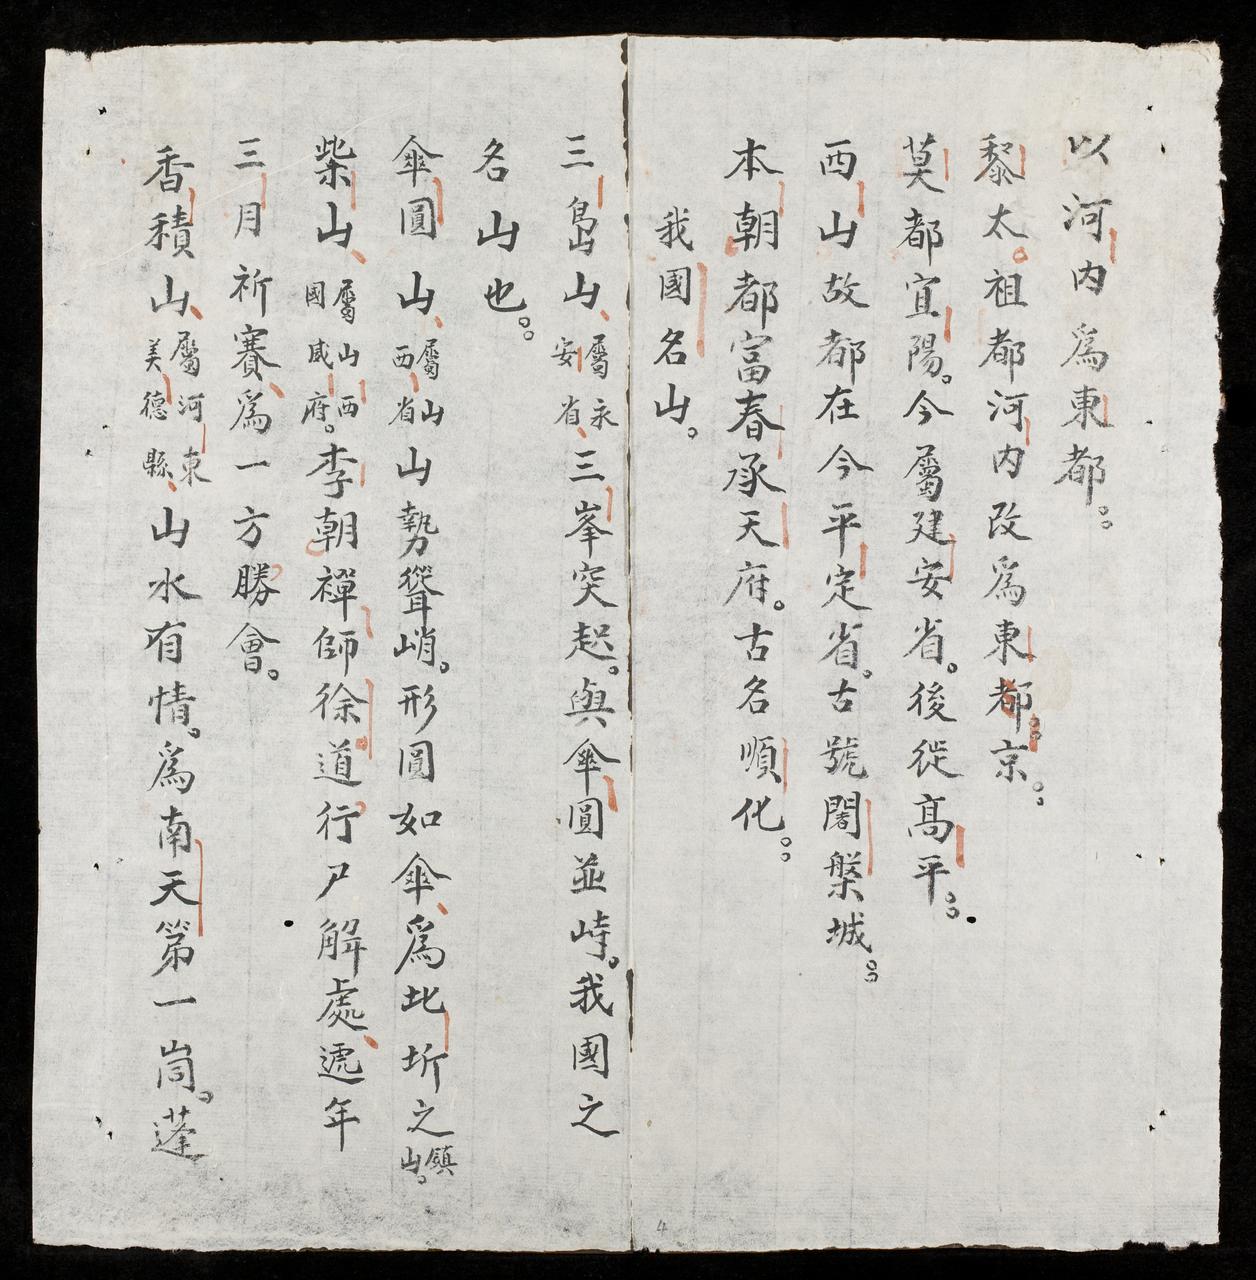 以河内爲東都。
黎太祖都河内改爲東都東京。
莫都宜陽。今屬建安省。後徙高平。
西山故都在今平定省。古號闍槃城。
本朝都富春承天府。古名順化。
我國名山。
三島山、屬永安省、三峯突起。與傘圓並峙。我國之
名山也。
傘圓山、屬山西省山勢聳峭。形圓如傘、爲北圻之鎮山。
柴山、屬山西國威府。李朝禪師徐道行尸解處、遞年
三月祈賽、爲一方勝會。
香積山、屬河東美德縣、山水有情。爲南天第一峝。蓬